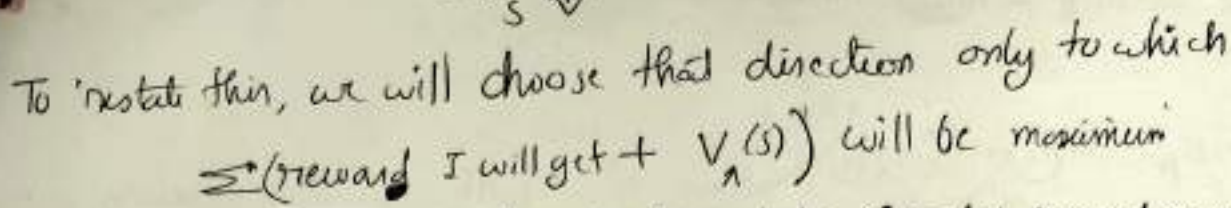 S V
To restate this, we will choose that direction only to which
Σ(reward I will get + V^(s)) will be maximum